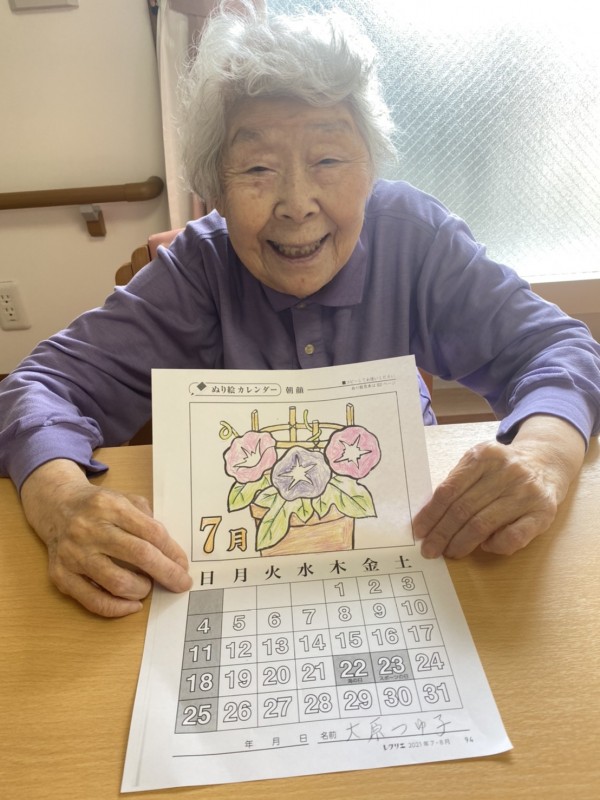 ぬり絵カレンダー 朝顔
7月
日 月 火 水 木 金 土
1 2 3
4 5 6 7 8 9 10
11 12 13 14 15 16 17
18 19 20 21 22 23 24
海の日 スポーツの日
25 26 27 28 29 30 31
年 月 日 名前 大原つゆ子
レクリエ 2021年7・8月 94